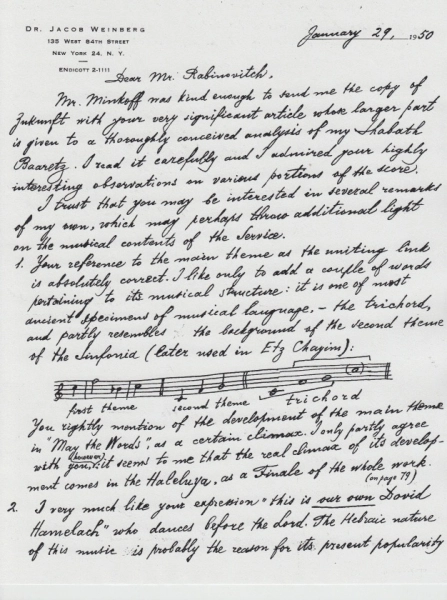 DR. JACOB WEINBERG
135 WEST 84TH STREET
NEW YORK 24, N. Y.
ENDICOTT 2-1111
January 29, 1950
Dear Mr. Rabinovitch,
Mr. Minkoff was kind enough to send me the copy of
Zukunft with your very significant article whose larger part
is given to a thoroughly conceived analysis of my Shabath
Baaretz. I read it carefully and I admired your highly
interesting observations on various portions of the score.
I trust that you may be interested in several remarks
of my own, which may perhaps throw additional light
on the musical contents of the Service.
1. Your reference to the main theme as the uniting link
is absolutely correct. I like only to add a couple of words
pertaining to its musical structure: it is one of most
ancient specimens of musical language, – the trichord,
and partly resembles the background of the second theme
of the Sinfonia (later used in Etz Chayim):
(a)
first theme second theme trichord
You rightly mention of the development of the main theme
in "May the Words", as a certain climax. I only partly agree
with you, (however) it seems to me that the real climax of its develop-
ment comes in the Haleluya, as a Finale of the whole work.
(on page 79)
2. I very much like your expression "this is our own David
Hamelach" who dances before the Lord. The Hebraic nature
of this music is probably the reason for its present popularity